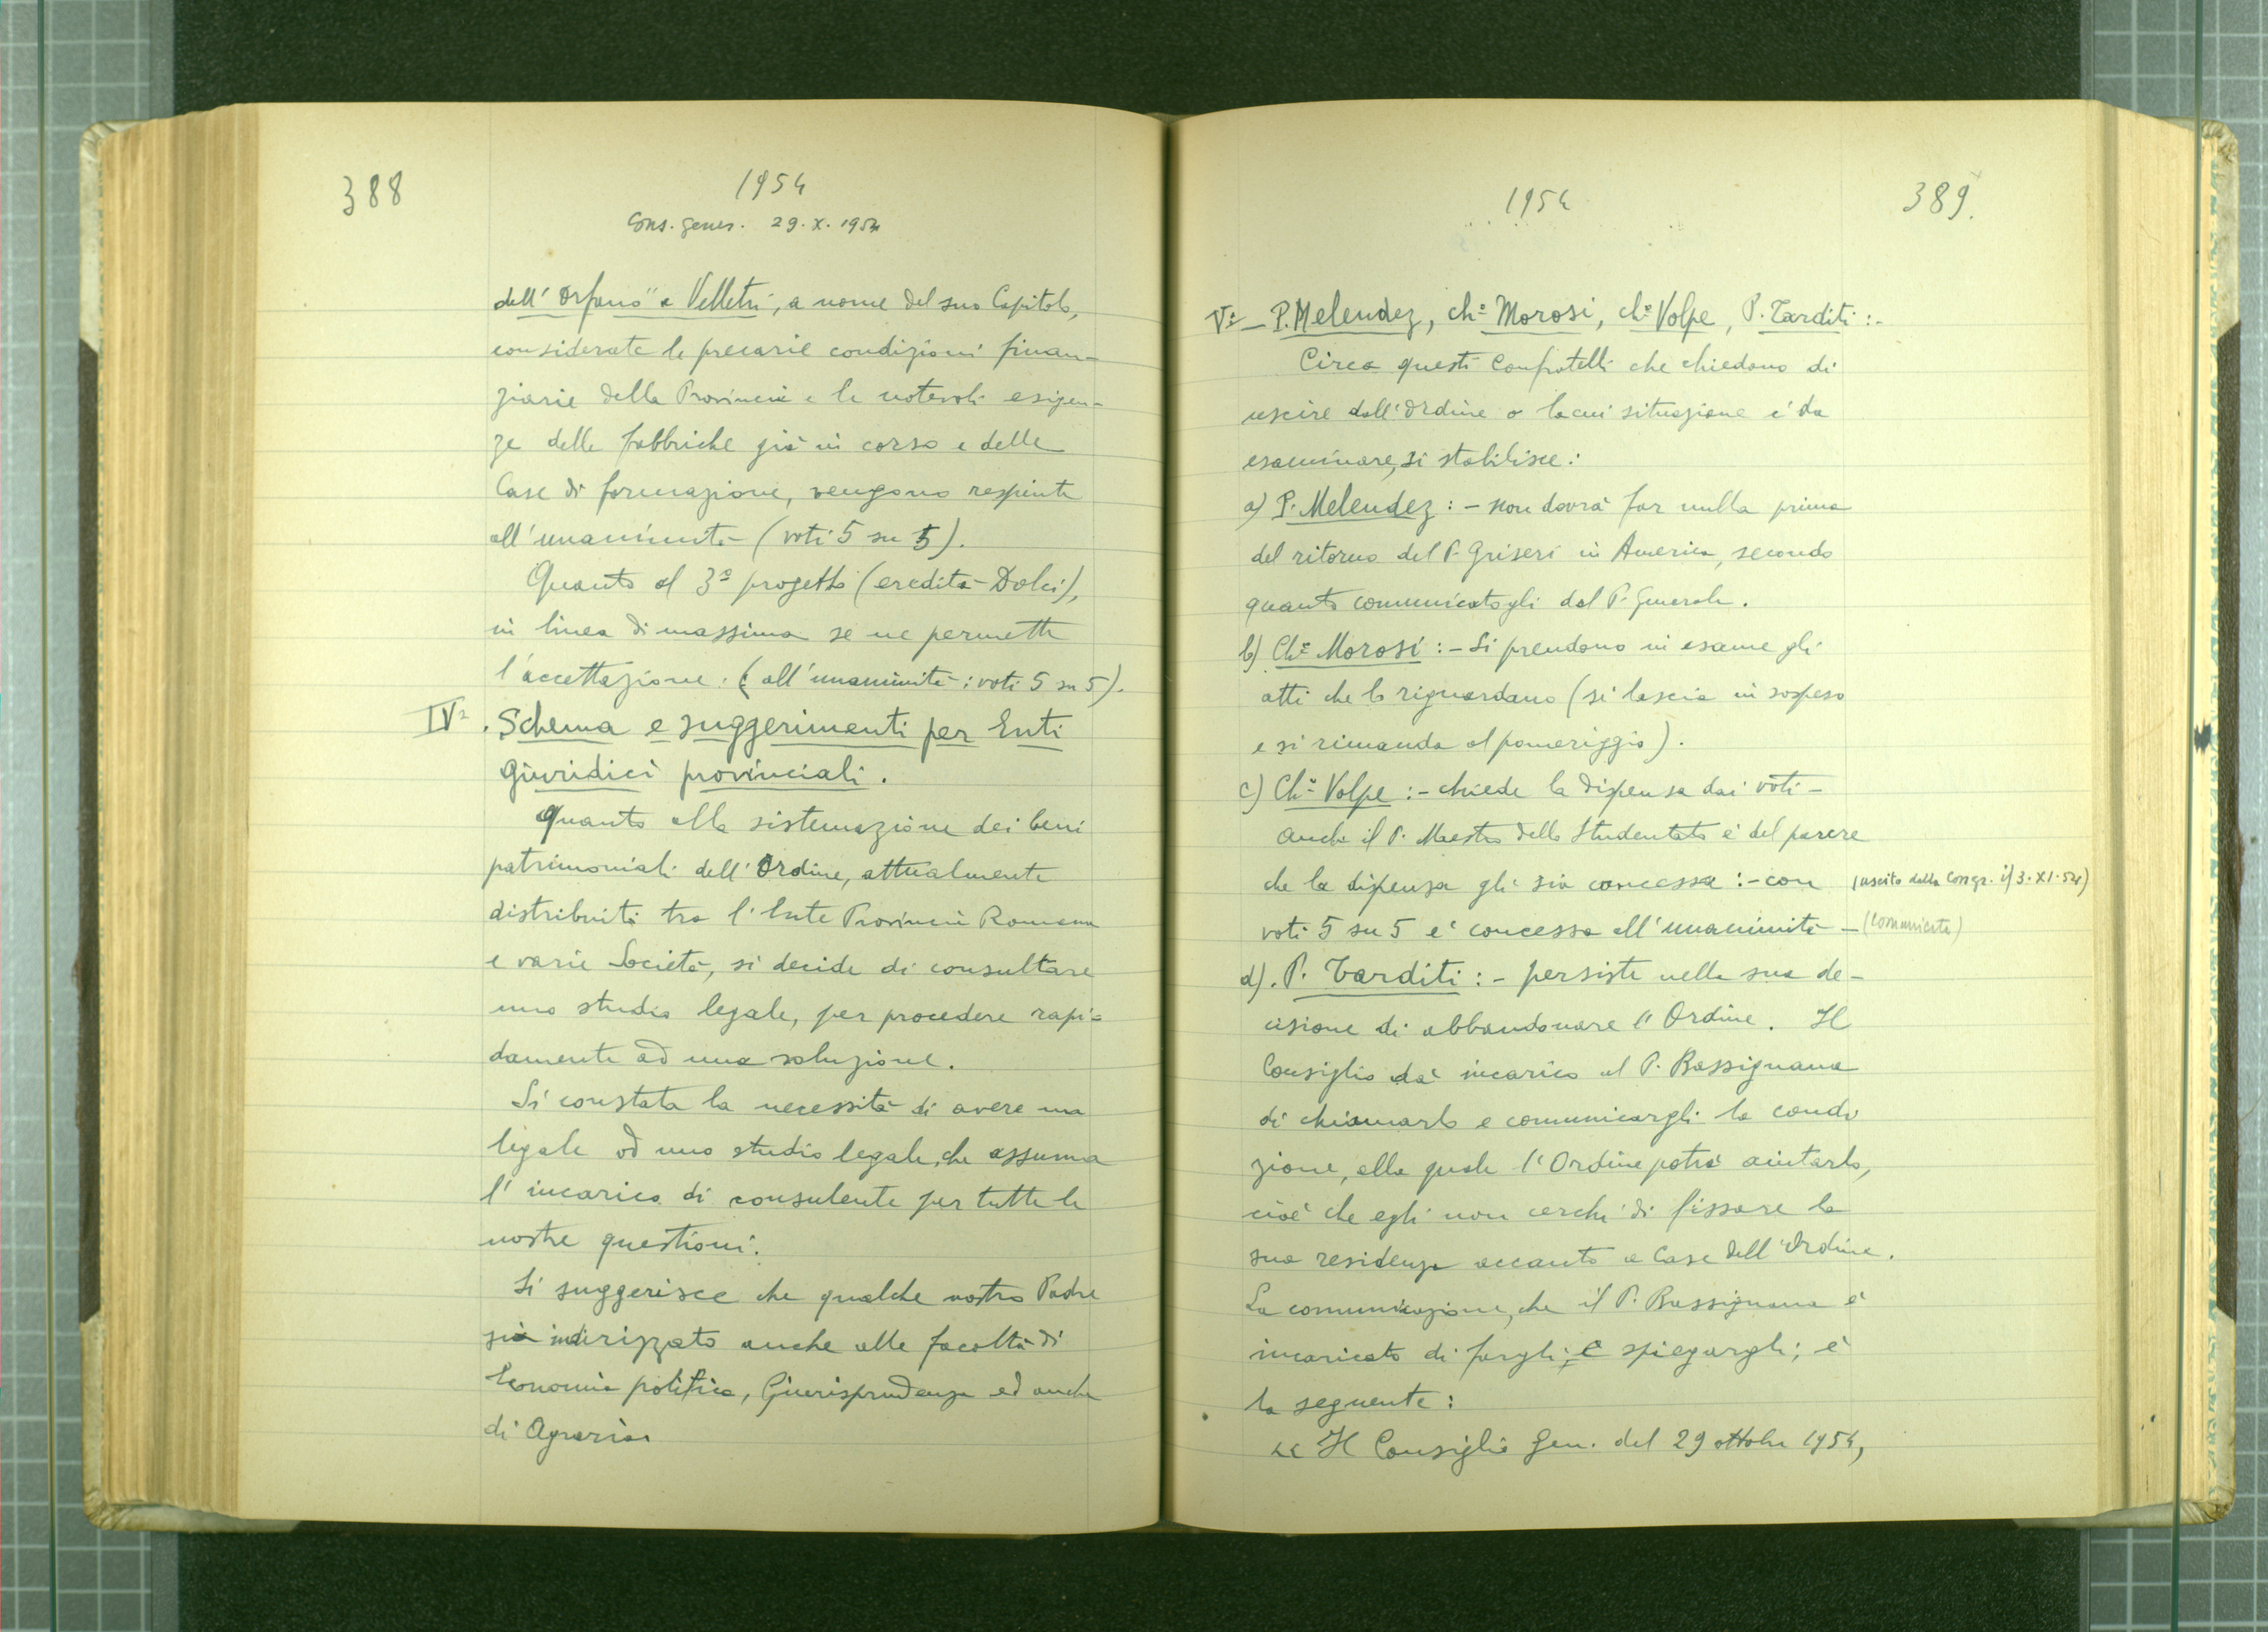 388
1954
Cons. gener. 29.X.1954
dell'Orfano" a Velletri, a nome del suo Capitolo,
considerate le precarie condizioni finan-
ziarie della Provincia e le notevoli esigen-
ze delle fabbriche già in corso e delle
Case di formazione, vengono respinte
all'unanimità (voti 5 su 5).
Quanto al 3º progetto (eredità Dolci),
in linea di massima se ne permette
l'accettazione: (all'unanimità: voti 5 su 5).
IVº. Schema e suggerimenti per Enti
Giuridici provinciali.
Quanto alla sistemazione dei beni
patrimoniali dell'Ordine, attualmente
distribuiti tra l'Ente Provincia Romana
e varie Società, si decide di consultare
uno studio legale, per procedere rapi=
damente ad una soluzione.
Si constata la necessità di avere un
legale od uno studio legale, che assuma
l'incarico di consulente per tutte le
nostre questioni.
Si suggerisce che qualche nostro Padre
sia indirizzato anche alle facoltà di
Economia politica, Giurisprudenza ed anche
di Agraria
1954
389.
Vº- P. Melendez, chº Morosi, chº Volpe, P. Tarditi:-
Circa questi Confratelli che chiedono di
uscire dall'Ordine o la cui situazione è da
esaminare, si stabilisce:
a) P. Melendez: - non dovrà far nulla prima
del ritorno del P. Griseri in America, secondo
quanto comunicatogli dal P. Generale.
b) Chº Morosi: - Si prendono in esame gli
atti che lo riguardano (si lascia in sospeso
e si rimanda al pomeriggio).
c) Chº Volpe: - chiede la dispensa dai voti -
anche il P. Maestro dello Studentato è del parere
che la dispensa gli sia concessa: - con (uscito dalla Congr. il 3.XI.54)
voti 5 su 5 è concessa all'unanimità - (comunicato)
d). P. Tarditi: - persiste nella sua de-
cisione di abbandonare l'Ordine. Il
Consiglio dà incarico al P. Bassignana
di chiamarlo e comunicargli la condi
zione, alla quale l'Ordine potrà aiutarlo,
cioè che egli non cerchi di fissare la
sua residenza accanto a Case dell'Ordine.
La comunicazione, che il P. Bassignana è
incaricato di fargli, e spiegargli; è
la seguente:
« Il Consiglio Gen. del 29 ottobre 1954,